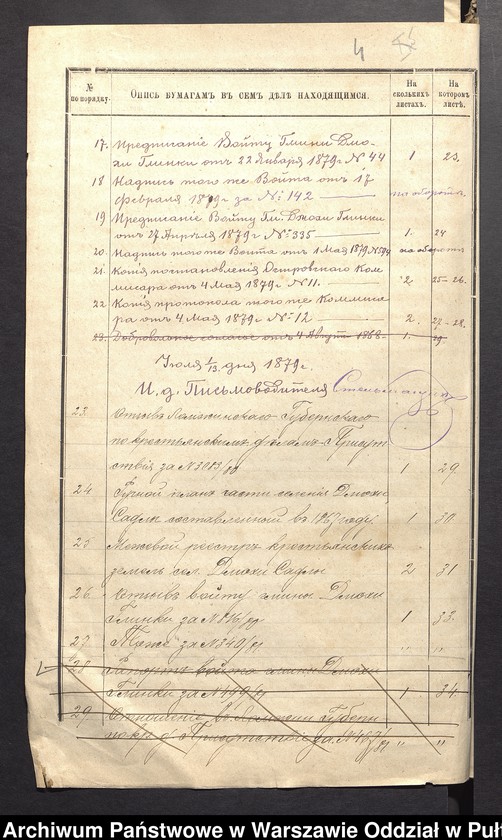 4
№ по порядку.
Опись бумагамъ въ семъ дѣлѣ находящимся.
На сколькихъ листахъ.
На которомъ листѣ.
17. Предписаніе Войту Гмины Дмо-
хи Глинки отъ 22 Января 1879 г. № 44 1 23.
18 Надпись того же Войта отъ 17
Февраля 1879 г за № 142 на оборотѣ.
19 Предписаніе Войту Гм. Дмохи Глинки
отъ 27 Апрѣля 1879 г. № 335 1. 24
20. Надпись того же Войта отъ 1 Мая 1879 № 594 на оборотѣ
21. Копія постановленія Островскаго Ком
мисара отъ 4 Мая 1879 г № 11. 2 25-26.
22. Копія протокола того же Коммиса
ра отъ 4 Мая 1879 г. № 12 2. 27-28.
23. Добровольное отъ 4 Августа 1868 1. 29
Іюля 1/13 дня 1879 г.
И. д. Письмоводителя
23. Отзывъ Ломжинскаго Губернскаго
по крестьянскимъ дѣламъ Присут
ствія за № 3083/80 1 29.
24 Ручной планъ части селенія Дмохи
Садлы составленный въ 1867 году. 1 30
25 Межевой реестръ крестьянскихъ
земель сел. Дмохи Садлы 2 31
26. Отзывъ войту гмины Дмохи
Глинки за № 1 33.
27 Тоже за № 340/81 " "
28 Рапортъ войта гмины Дмохи
Глинки за № 1 34.
29. Отношеніе въ Ломжин Губерн
по кр. д. Присутствіе за № " "
Archiwum Państwowe w Warszawie Oddział w Puł